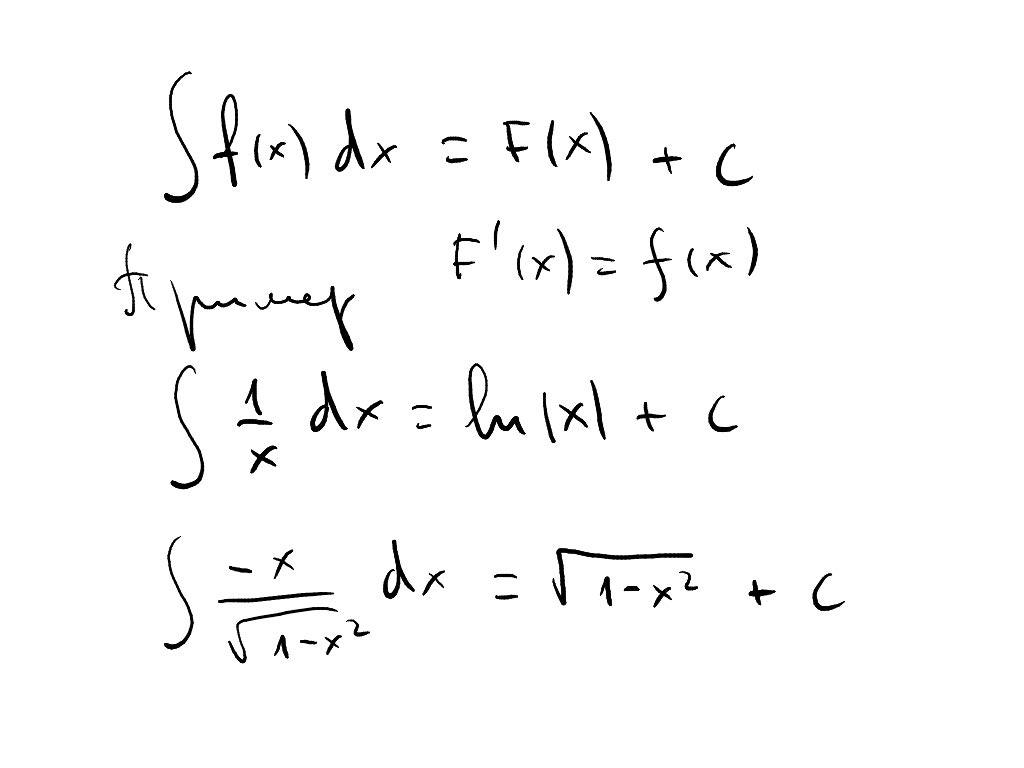 ∫ f(x) dx = F(x) + C
F'(x) = f(x)
Пример
∫ 1/x dx = ln|x| + C
∫ -x/√(1-x²) dx = √(1-x²) + C